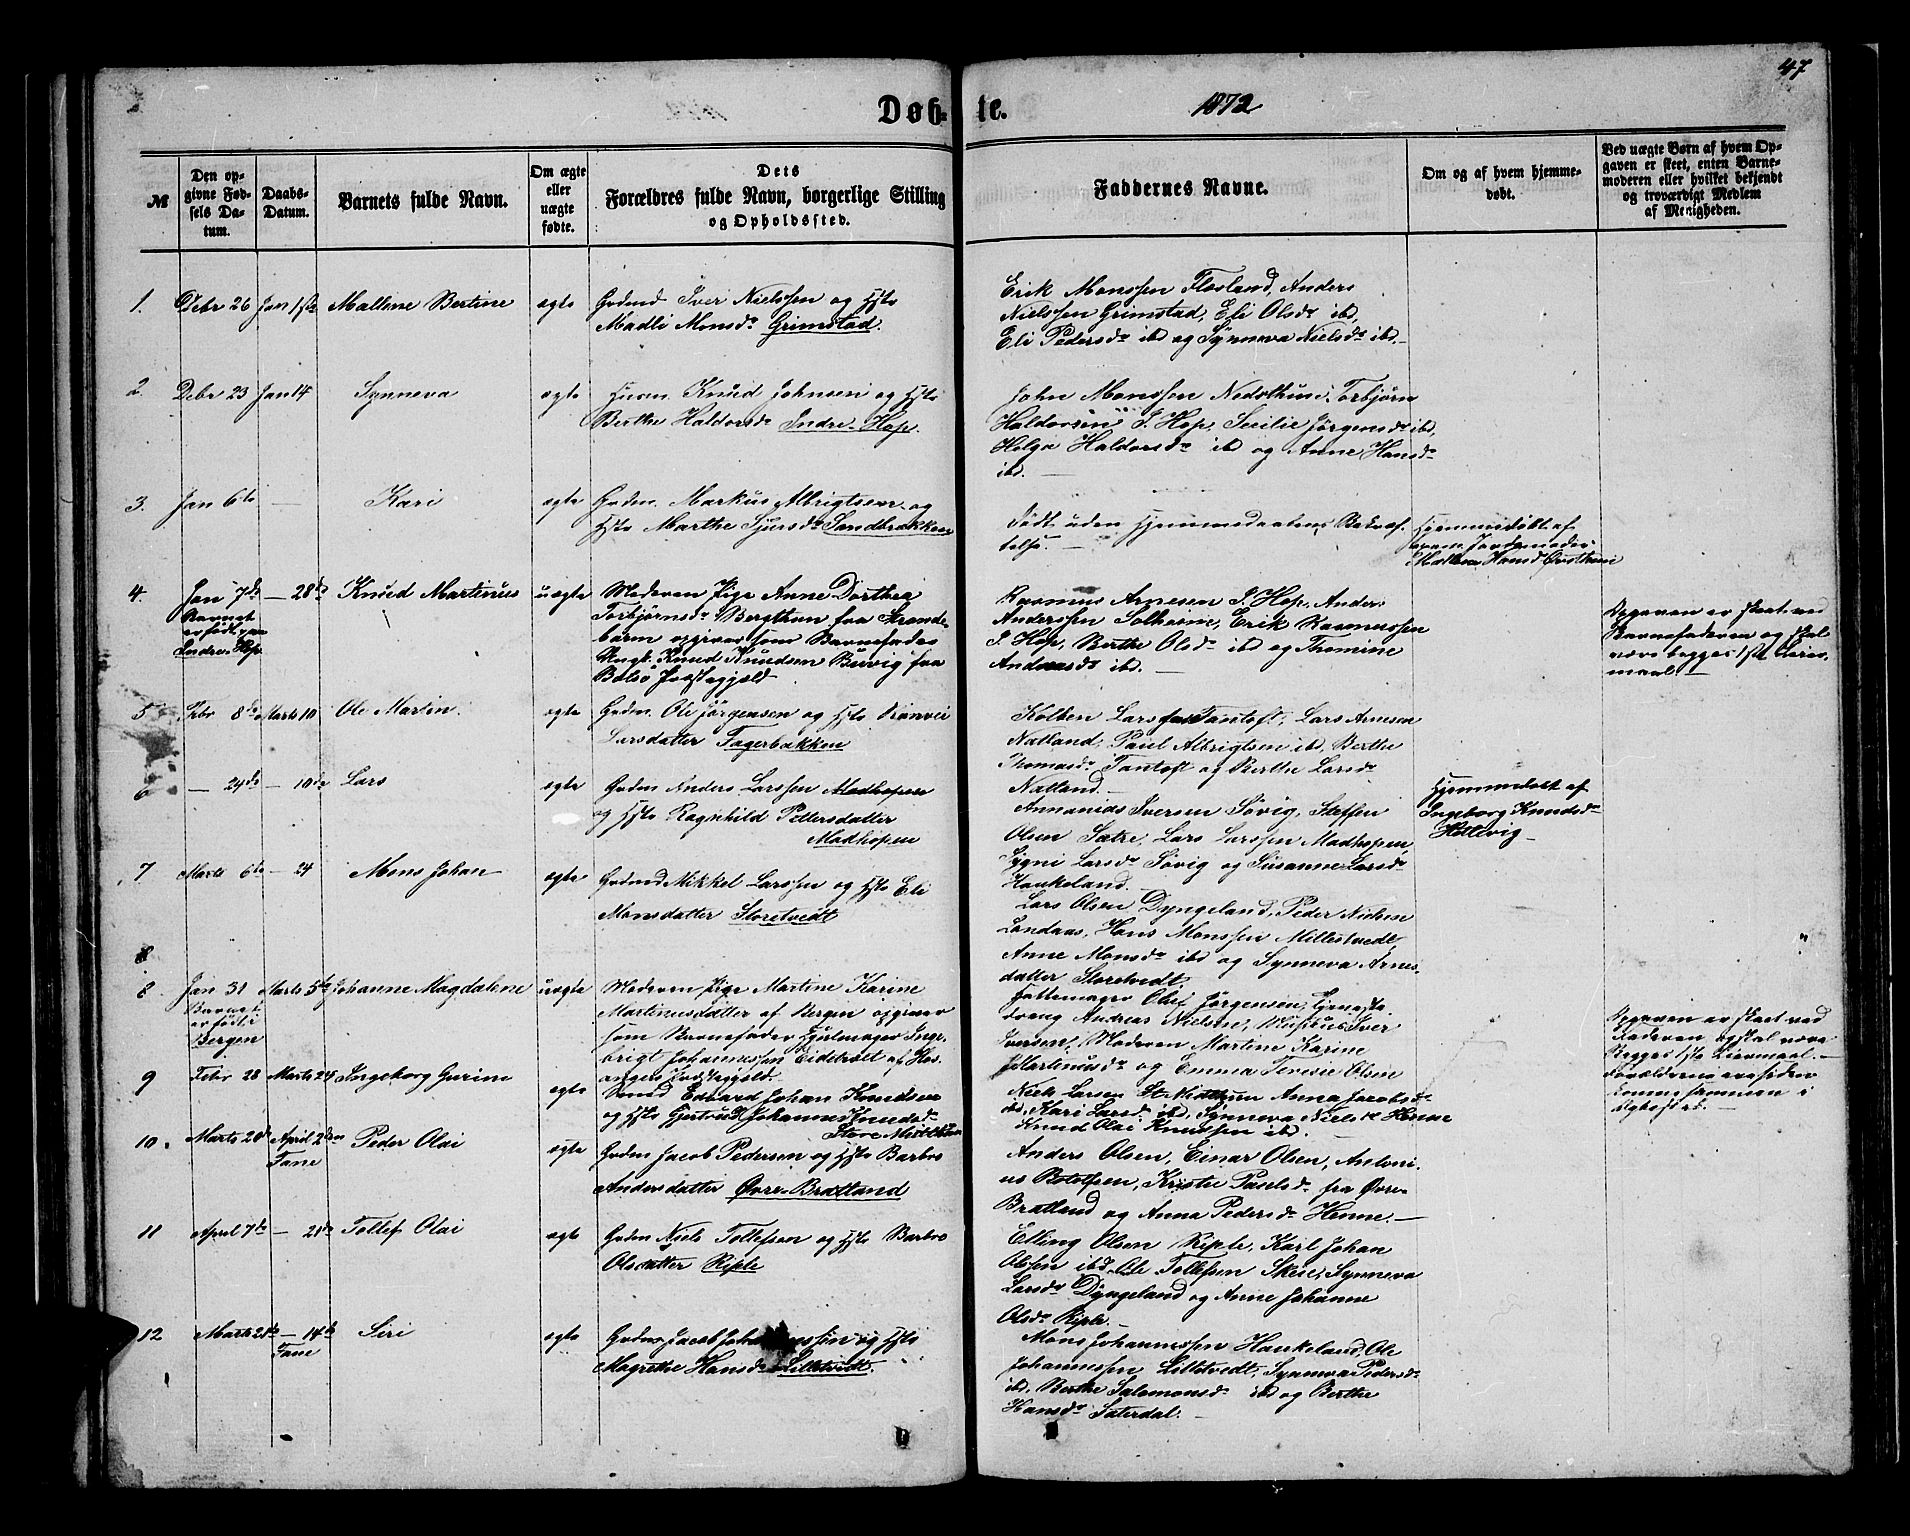 47
Døb-te. 1872
№
Den op-
givne Fød-
sels Da-
tum.
Daabs-
Datum.
Barnets fulde Navn.
Om ægte
eller
uægte
fødte.
Dets
Forældres fulde Navn, borgerlige Stilling
og Opholdssted.
Faddernes Navne.
Om og af hvem hjemme-
døbt.
Ved uægte Børn af hvem Op-
gaven er skeet, enten Barne-
moderen eller hvilket bekjendt
og troværdigt Medlem
af Menigheden.
1. Debr 26 Jan 1ste Mallene Bertine ægte Grdmd Iver Nielssen og Hst
Madli Monsdr Grimstad.
Erik Monssen Flesland, Anders
Nielssen Grimstad, Eli Olsdr ibd,
Eli Pedersdr ibd og Synneva Nielsdr ibd.
2. Debr 23 Jan 14 Synneva ægte Knud Johnsen og Hst
Berthe Haldorsdr Indre-Hop.
John Monssen Nedsthuse, Torbjørn
Haldorsen I. Hop, Secilie Jørgensdr ibd,
Helga Haldorsdr ibd og Anne Hansdr
ibd.
3. Jan 6te — Kari ægte Grdm. Markus Albrigtsen og
Hst Marthe Sjursdr Sandbrækken
Født uden Hjemmedaabens Bekræf-
telse.
Hjemmedøbt af
Jordemoder
Hansdr
4. Jan 7de — 28de Knud Martinus uægte Moderen Pige Anne Dorthea
Barnet
er født paa
Indre-Hop
Torbjørnsdr Bergthun fra Strande-
barm opgiver som Barnefader
Ungk. Knud Knudsen fra
Bolsø Præstegjeld.
Rasmus Arnesen I. Hop, Anders
Anderssen Solheim, Erik Rasmussen
I. Hop, Berthe Olsdr ibd og Thomine
Andersdr ibd.
Opgaven er skeet ved
Barnefaderen og skal
være begges 1ste Leier-
maal.
5 Febr 8de Marts 10 Ole Martin. ægte Grdm. Ole Jørgensen og Hst Rønvei
Larsdatter Fagerbakken
Kolben Larsdr Tantoft, Lars Arnesen
Natland, Paul Albrigtsen ibd, Berthe
Thomasdr Tantoft og Berthe Larsdr
Natland.
6 — 24de — 10de Lars ægte Grdm Anders Larssen Madhopen
og Hst Ragnhild Pettersdatter
Madhopen
Annanias Iversen Søvig, Steffen
Olsen Sætre, Lars Larssen Madhopen,
Sygni Larsdr Søvig og Susanne Larsdr
Haukeland.
Hjemmedøbt af
Ingeborg Knudsdr
7 Marts 6te — 24 Mons Johan ægte Grdmd Mikkel Larssen og Hst Eli
Monsdatter Storetvedt
Lars Olsen Dyngeland, Peder Nielsen
Landaas, Hans Monssen Milletvedt,
Anne Monsdr ibd og Synneva Arnes-
datter Storetvedt.
8
8. Jan 31 Marts 5te Johanne Magdalene uægte Moderen Pige Martine Karine
Barnet
er født i
Bergen
Martinusdatter af Bergen opgiver
som Barnefader Hjulmager Inge-
brigt Johannessen Eidetvedt af Hos-
angers Præstegjeld.
Pottemager Olai Jørgensen, Tjeneste-
dreng Andreas Nielsen, Iver
Iversen, Moderen Martine Karine
Martinusdr og Emma Terese Olsen
Opgaven er skeet ved
Faderen og skal være
Begges 1ste Leiermaal.
Forældrene ere siden
komne sammen i
Ægtestd.
9 Febr 28 Marts 24 Ingeborg Gurine ægte Edvard Johan Knudsen
og Hst Gjertrud Johanne Knudsdr
Store Midtthun
Niels Larsen St. Midtthun Anna Jacobsdr
ibd, Kari Larsdr ibd, Synneva Nielsdr Henne
Knud Olai Knudssen ibd.
10. Marts 20de April 2den Peder Olai ægte Grdm Jacob Pedersen og Hst Barbro
Fane
Andersdatter Øvre-Bratland
Anders Olsen, Einar Olsen, Antoni-
us Rolfsen, Kristi Paulsdr fra Øvre-
Bratland og Anna Pedersdr Henne.
11 April 7de — 21de Tollef Olai ægte Grdm Niels Tollefsen og Hst Barbro
Olsdatter Riple
Elling Olsen Riple, Karl Johan
Olsen ibd, Ole Tollefsen Skeie, Synneva
Larsdr Dyngeland og Anne Johanne
Olsdr Riple.
12 Marts 21de — 14de Siri ægte Grdm Jacob Johannessen og Hst
Fane
Magrethe Hansdr Lilletvedt.
Mons Johannessen Haukeland, Ole
Johannessen Lilletvedt, Synneva Pedersdr
ibd, Berthe Salomonsdr ibd og Berthe
Hansdr Sæterdal.